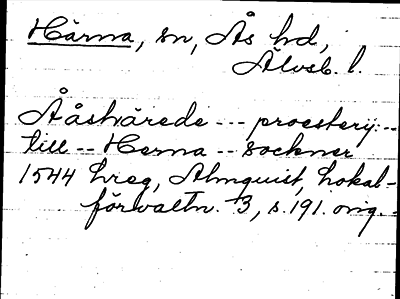 Härna, sn, Ås hd,
Älvsb. l.
Ååshärede --- proesterij ---
till -- Herna -- sockner
1544 hreg, Almquist, Lokal-
förvaltn. 3, s. 191. orig.